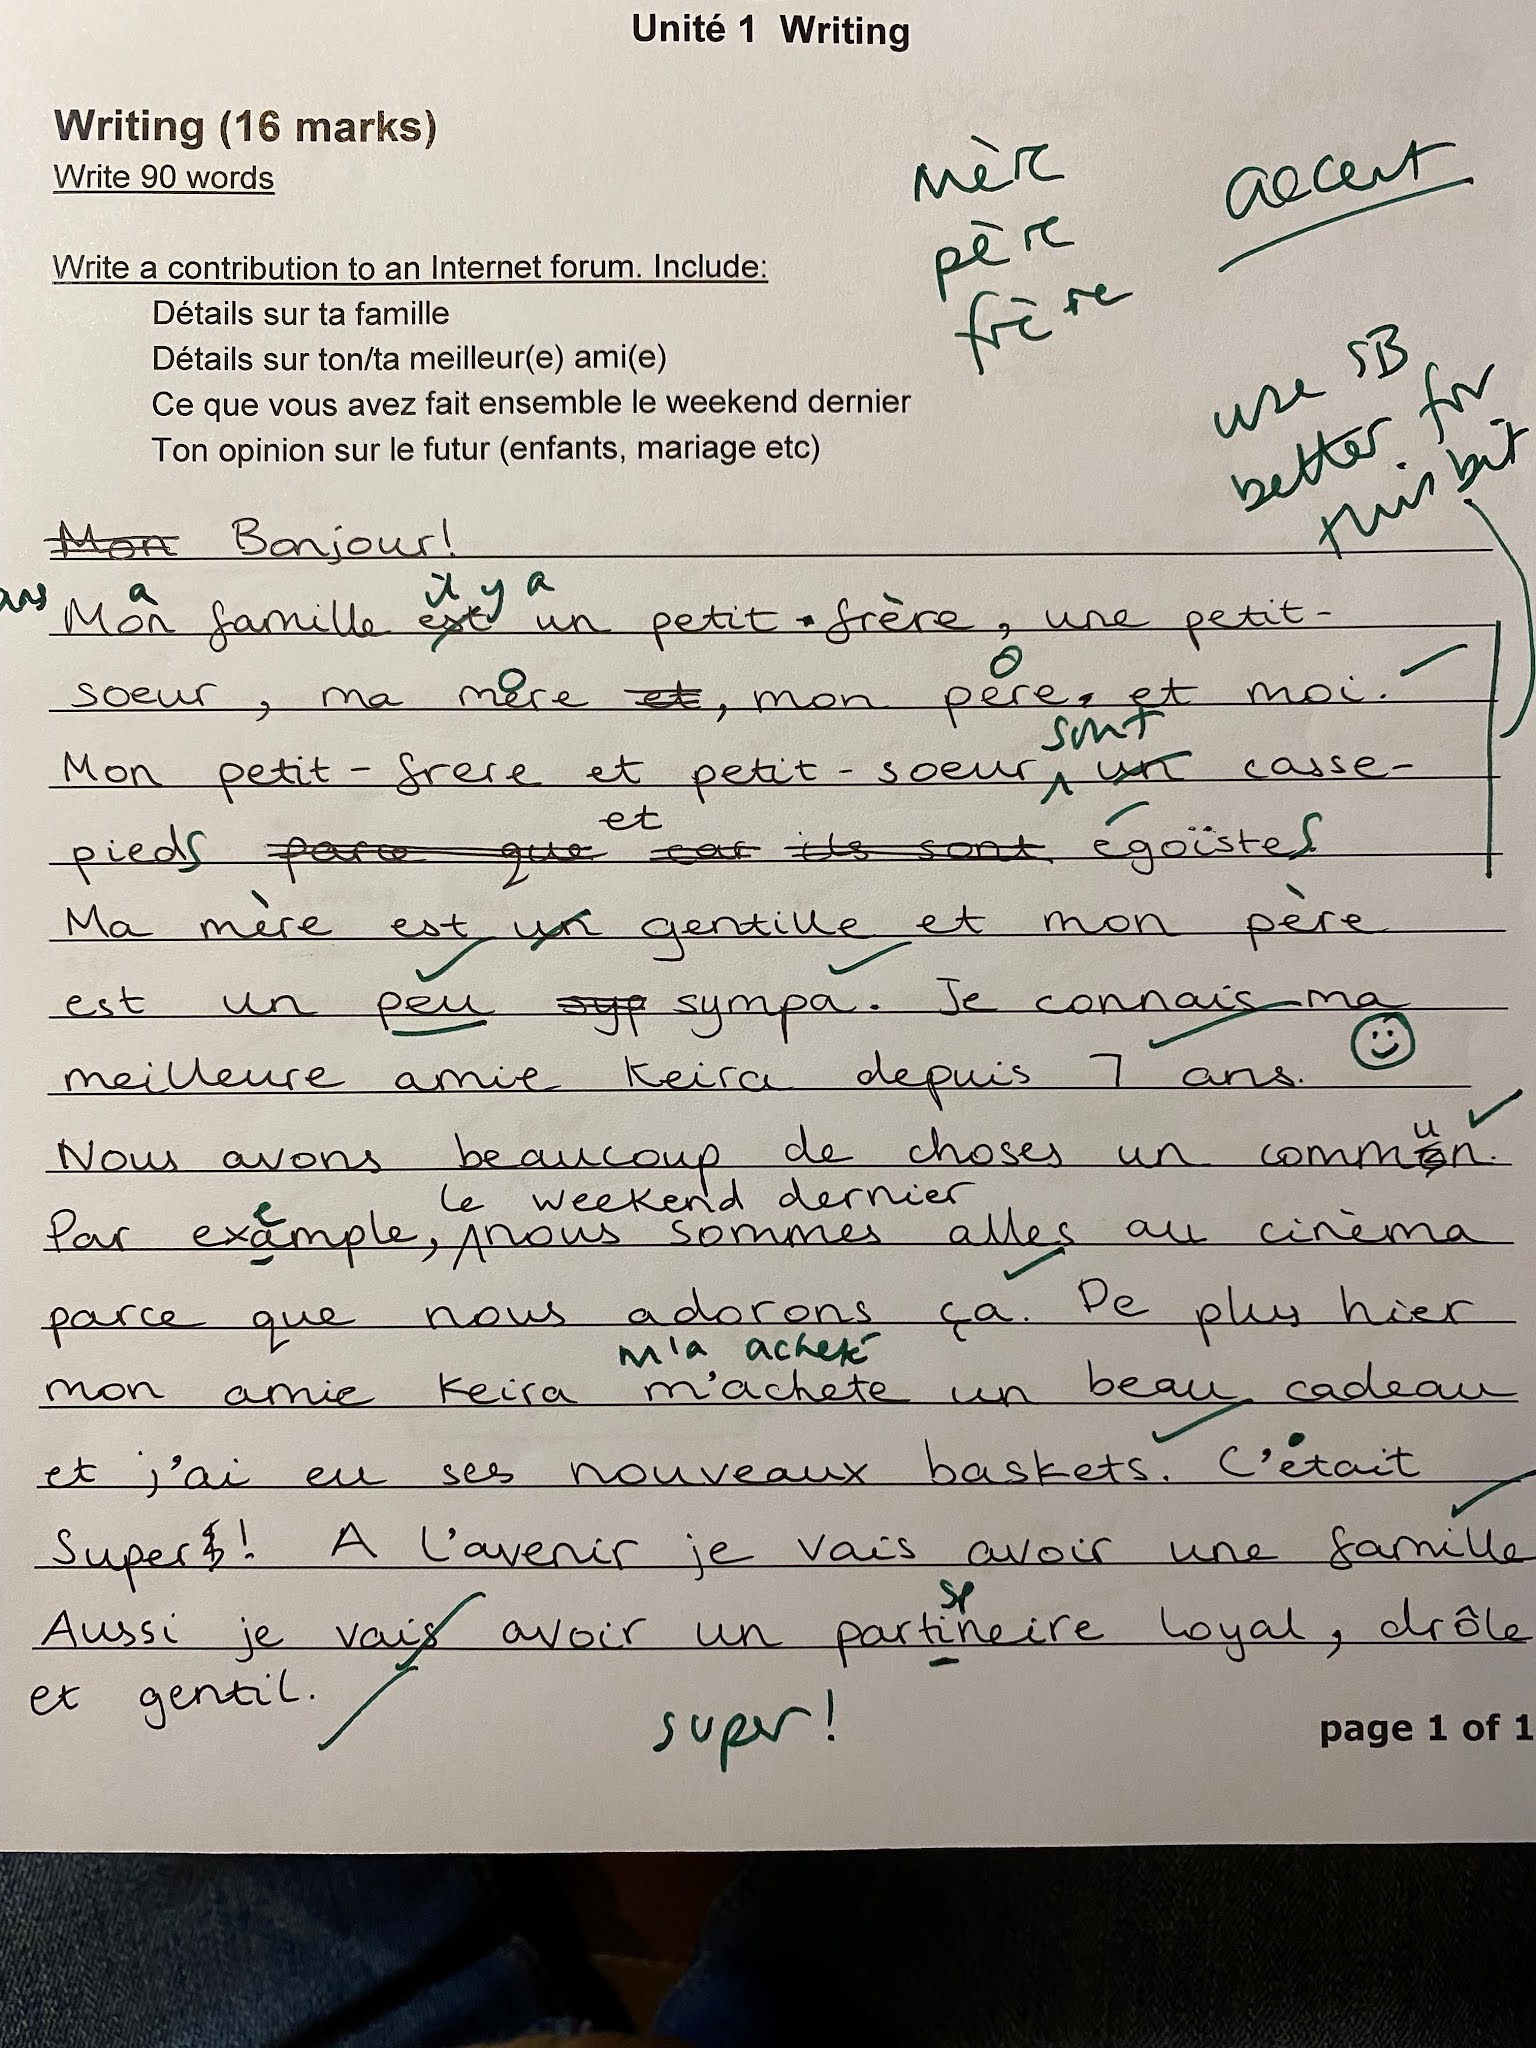 Unité 1 Writing
Writing (16 marks)
Write 90 words
mère
père
frère
accent
Write a contribution to an Internet forum. Include:
Détails sur ta famille
Détails sur ton/ta meilleur(e) ami(e)
Ce que vous avez fait ensemble le weekend dernier
Ton opinion sur le futur (enfants, mariage etc)
use SB
better for
this bit
Mon Bonjour!
a il y a
Mon famille est un petit frère, une petit-
soeur, ma mère et, mon père, et moi.
sont
Mon petit-frere et petit-soeur un casse-
et
pieds parce que car ils sont égoïstes
Ma mère est un gentille et mon père
est un peu syp sympa. Je connais ma
meilleure amie Keira depuis 7 ans.
Nous avons beaucoup de choses un commun.
le weekend dernier
e
Par example, nous sommes alles au cinèma
parce que nous adorons ça. De plus hier
m'a acheté
mon amie Keira m'achete un beau cadeau
et j'ai eu ses nouveaux baskets. C'était
Super! A l'avenir je vais avoir une famille
sp
Aussi je vais avoir un partineire loyal, drôle
et gentil.
super!
page 1 of 1